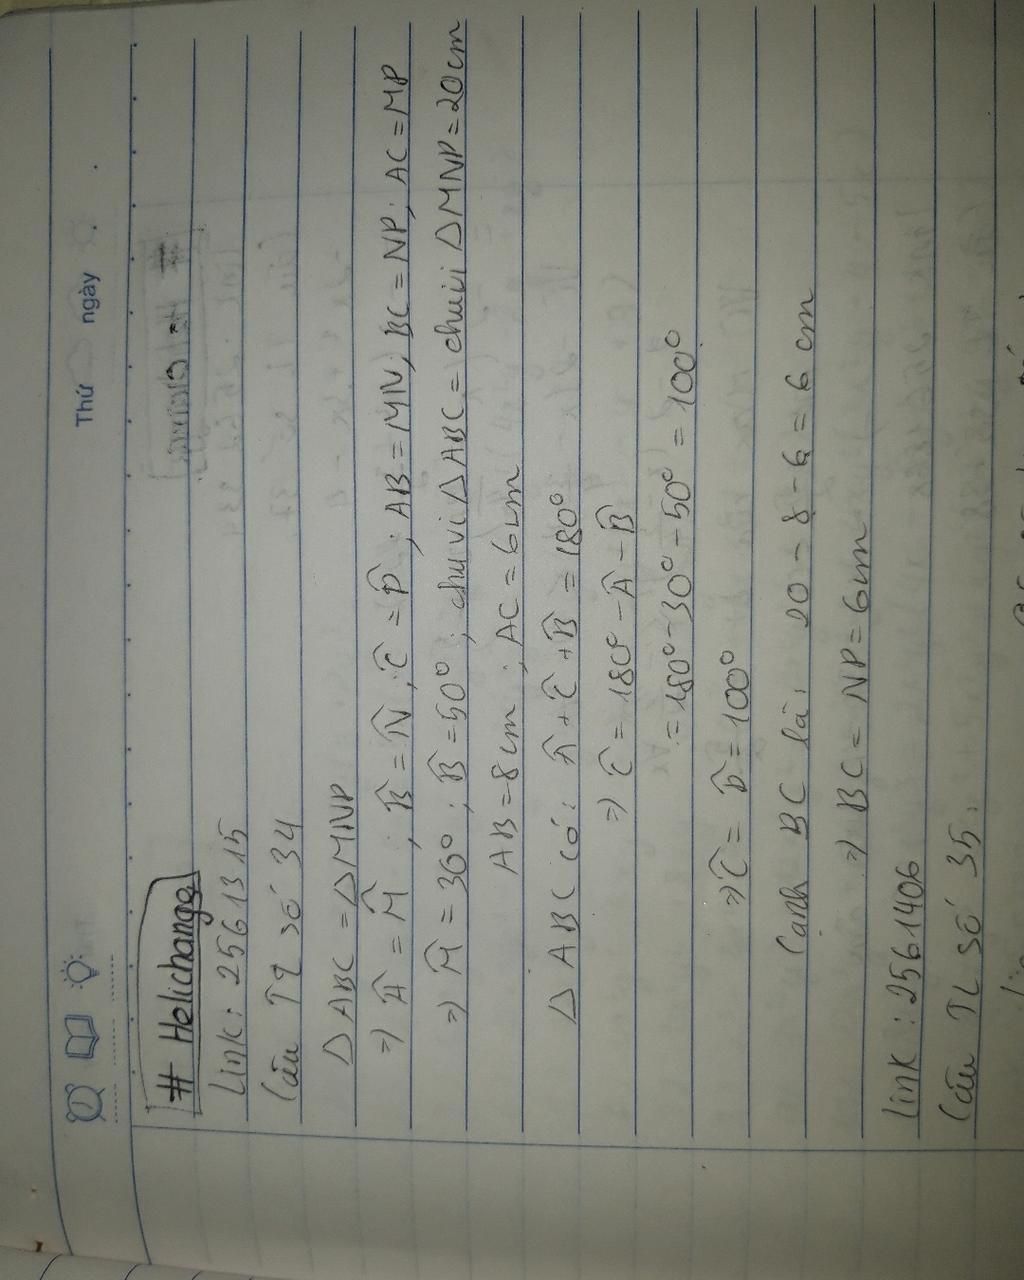 Thứ ngày
# Helichanga
Link: 2561315
Câu TL số 34
△ ABC = △ MNP
⇒ Â = M̂ ; B̂ = N̂ ; Ĉ = P̂ ; AB = MN ; BC = NP ; AC = MP
⇒ M̂ = 30° ; B̂ = 50° ; chu vi △ ABC = chu vi △ MNP = 20cm
AB = 8cm ; AC = 6cm
△ ABC có: Â + Ĉ + B̂ = 180°
⇒ Ĉ = 180° - Â - B̂
= 180° - 30° - 50° = 100°
⇒ Ĉ = P̂ = 100°
Cạnh BC là: 20 - 8 - 6 = 6 cm
⇒ BC = NP = 6cm
link : 2561406
Câu TL số 35: